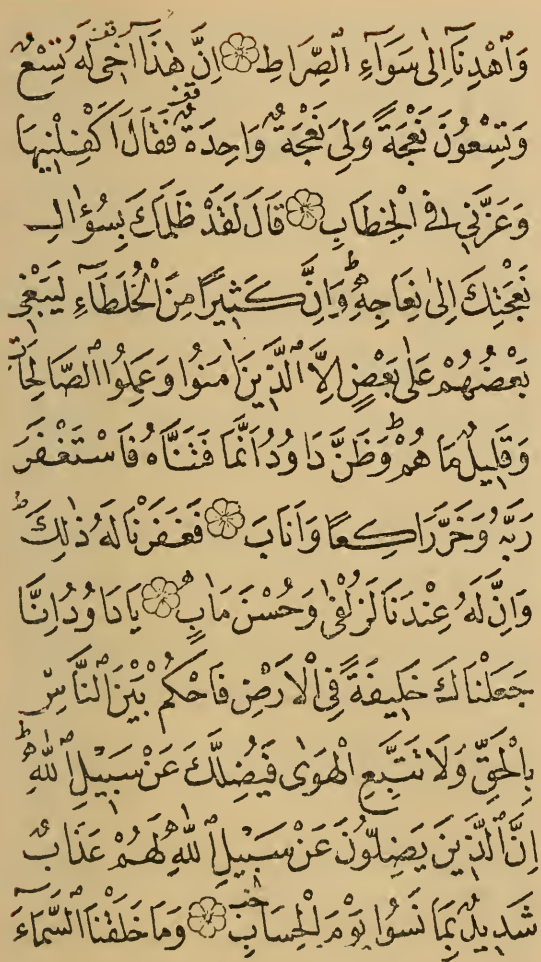 وَٱهْدِنَآ اِلٰى سَوَآءِ ٱلصِّرَاطِ ۝ اِنَّ هٰذَآ اَخٖى قف لَهُ تِسْعٌ
وَتِسْعُونَ نَعْجَةً وَلِىَ نَعْجَةٌ وَاحِدَةٌ قف فَقَالَ اَكْفِلْنٖيهَا
وَعَزَّنٖى فِى ٱلْخِطَابِ ۝ قَالَ لَقَدْ ظَلَمَكَ بِسُؤَالِ
نَعْجَتِكَ اِلٰى نِعَاجِهٖ ط وَاِنَّ كَثٖيرًا مِنَ ٱلْخُلَطَآءِ لَيَبْغٖى
بَعْضُهُمْ عَلٰى بَعْضٍ اِلَّا ٱلَّذٖينَ اٰمَنُوا وَعَمِلُوا ٱلصَّالِحَاتِ
وَقَلٖيلٌ مَا هُمْ ط وَظَنَّ دَاوُدُ اَنَّمَا فَتَنَّاهُ فَاسْتَغْفَرَ
رَبَّهُ وَخَرَّ رَاكِعًا وَاَنَابَ ۝ فَغَفَرْنَا لَهُ ذٰلِكَ ط
وَاِنَّ لَهُ عِنْدَنَا لَزُلْفٰى وَحُسْنَ مَاٰبٍ ۝ يَادَاوُدُ اِنَّا
جَعَلْنَاكَ خَلٖيفَةً فِى ٱلْاَرْضِ فَاحْكُمْ بَيْنَ ٱلنَّاسِ
بِالْحَقِّ وَلَا تَتَّبِعِ ٱلْهَوٰى فَيُضِلَّكَ عَنْ سَبٖيلِ ٱللّٰهِ ط
اِنَّ ٱلَّذٖينَ يَضِلُّونَ عَنْ سَبٖيلِ ٱللّٰهِ لَهُمْ عَذَابٌ
شَدٖيدٌ بِمَا نَسُوا يَوْمَ ٱلْحِسَابِ ۝ وَمَا خَلَقْنَا ٱلسَّمَآءَ